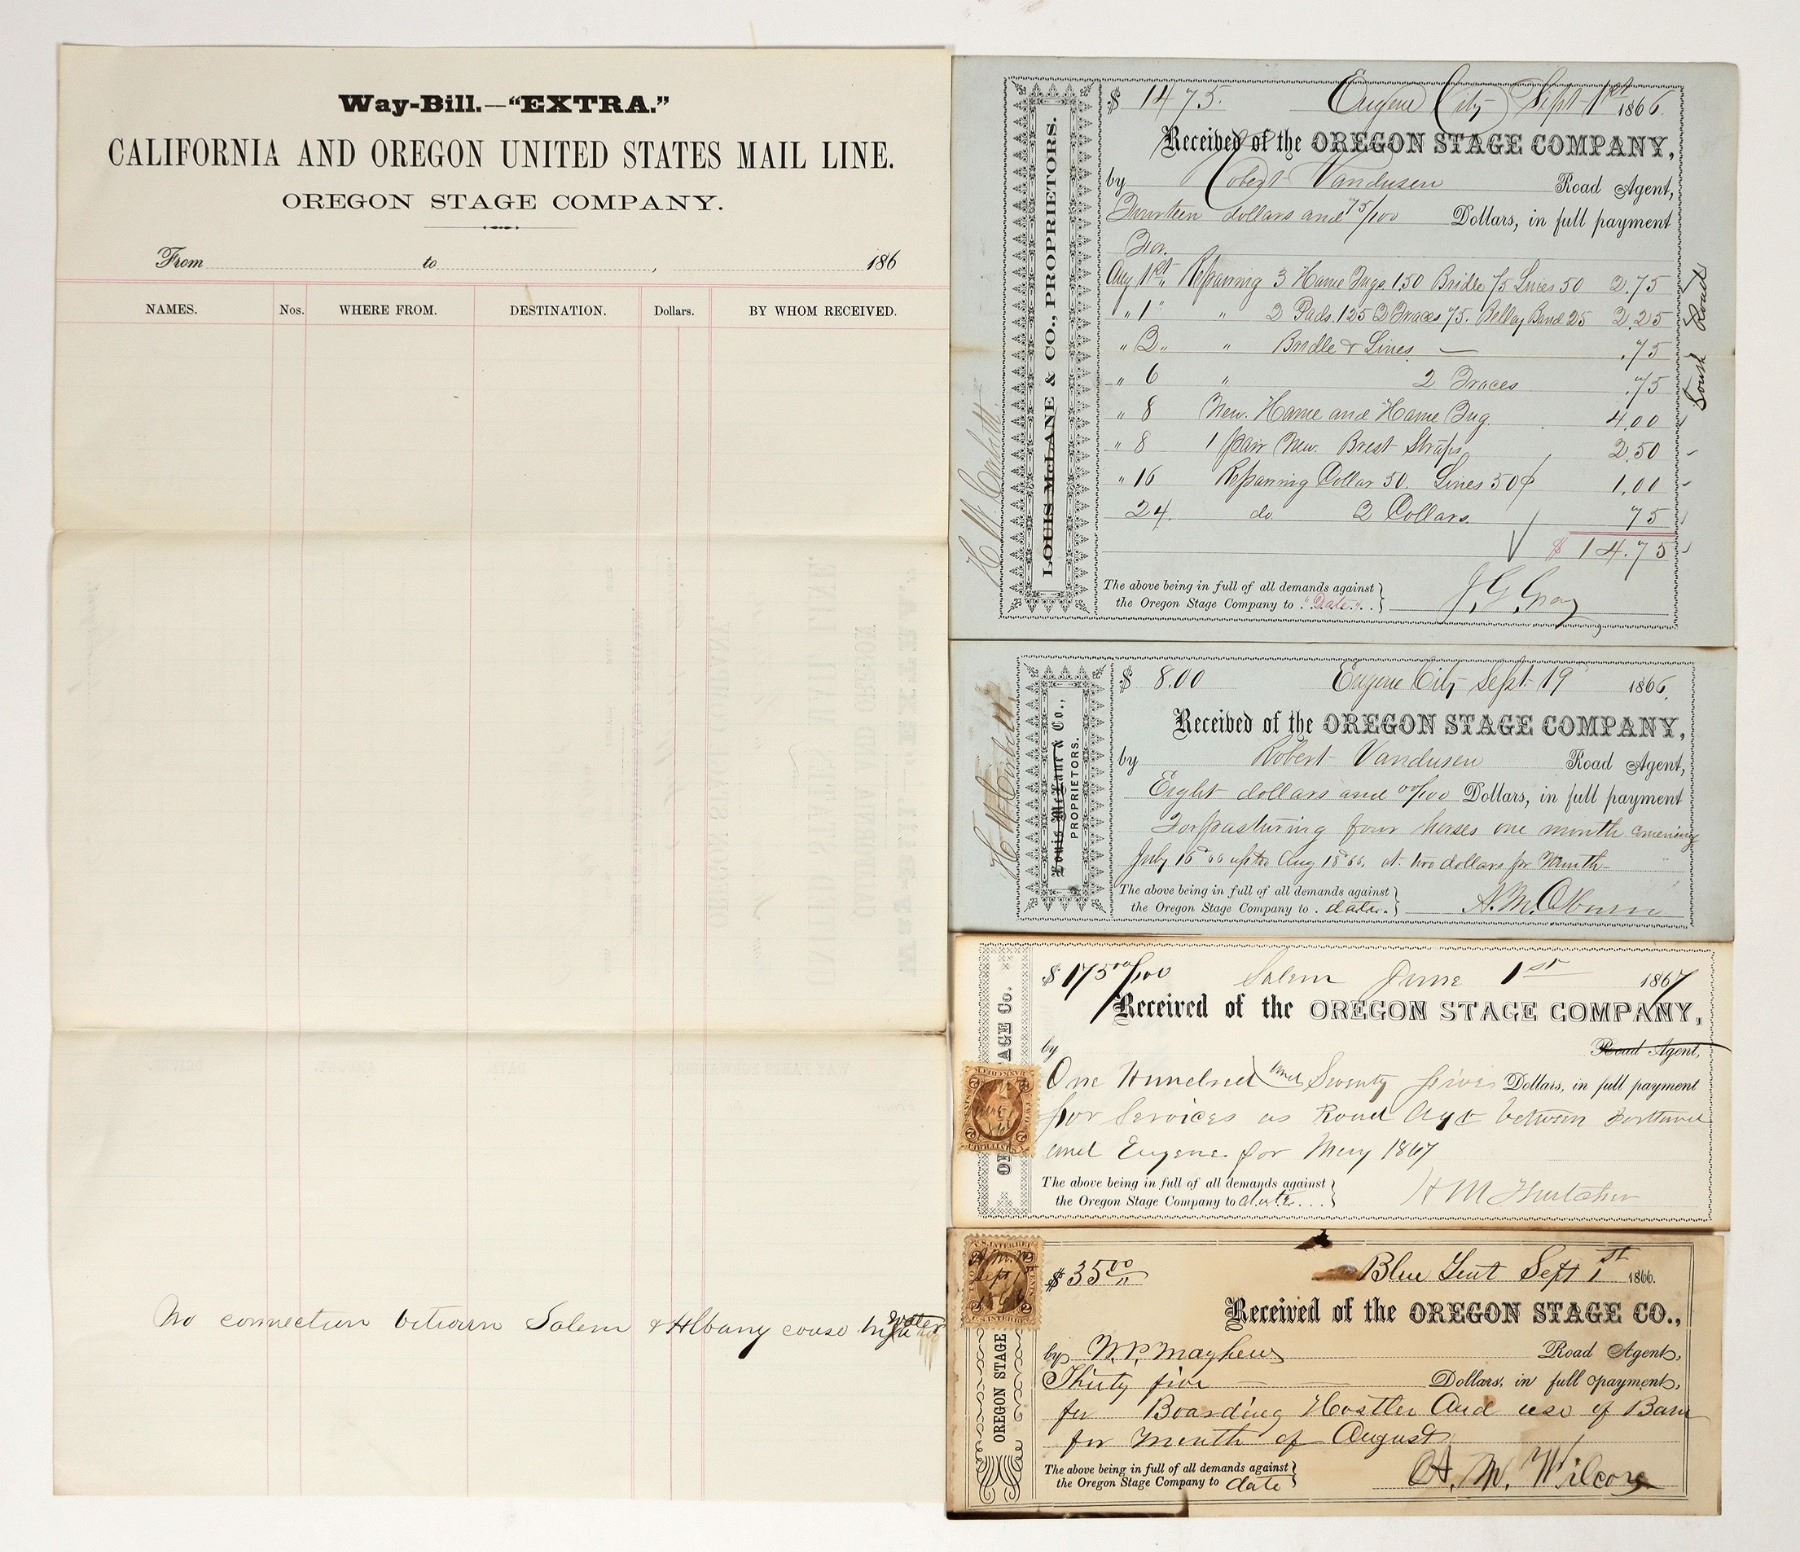 Way-Bill.—"EXTRA."
CALIFORNIA AND OREGON UNITED STATES MAIL LINE.
OREGON STAGE COMPANY.
From to , 186
NAMES. Nos. WHERE FROM. DESTINATION. Dollars. BY WHOM RECEIVED.
No connection between Salem & Albany couse high water
H W Corbett
LOUIS McLANE & CO., PROPRIETORS.
$ 14 75. Eugene City Sept 1st 1866.
Received of the OREGON STAGE COMPANY,
by Robert Vandusen Road Agent,
Fourteen dollars and 75/100 Dollars, in full payment
For
Aug 1st Repairing 3 Hame Tugs 1.50 Bridle 75 Lines 50 2.75
" 1 " " 2 Pads. 125 2 Traces 75. Bellay Band 25 2.25
" 2 " " Bridle & Lines — .75
" 6 " 2 Traces .75
" 8 New. Hame and Hame Tug. 4.00
" 8 1 pair New. Brest Straps 2.50
" 16 Repairing Collar 50. Lines 50¢ 1.00
24. do 2 Collars. 75
$ 14.75
South Road
The above being in full of all demands against
the Oregon Stage Company to "Date"
J. G. Gray
H W Corbett
Louis McLane & Co.,
PROPRIETORS.
$ 8.00 Eugene City Sept 19 1866.
Received of the OREGON STAGE COMPANY,
by Robert Vandusen Road Agent,
Eight dollars and 00/100 Dollars, in full payment
For pasturing four horses one month
July 16 66 up to Aug 18 66. at two dollars per Month
The above being in full of all demands against
the Oregon Stage Company to date.
A. M. Osburn
$ 175 00/100 Salem June 1st 1867
Received of the OREGON STAGE COMPANY,
by Road Agent,
One Hundred and Seventy five Dollars, in full payment
for Services as Road Agt between Portland
and Eugene for May 1867
The above being in full of all demands against
the Oregon Stage Company to date
H M Thatcher
$ 35 00 Blue Tent Sept 1st 1866.
Received of the OREGON STAGE CO.,
OREGON STAGE
by W. P. Mayhew Road Agent,
Thirty five Dollars, in full payment,
for Boarding Hostler And use of Barn
for Month of August
The above being in full of all demands against
the Oregon Stage Company to date
A. M. Wilcox